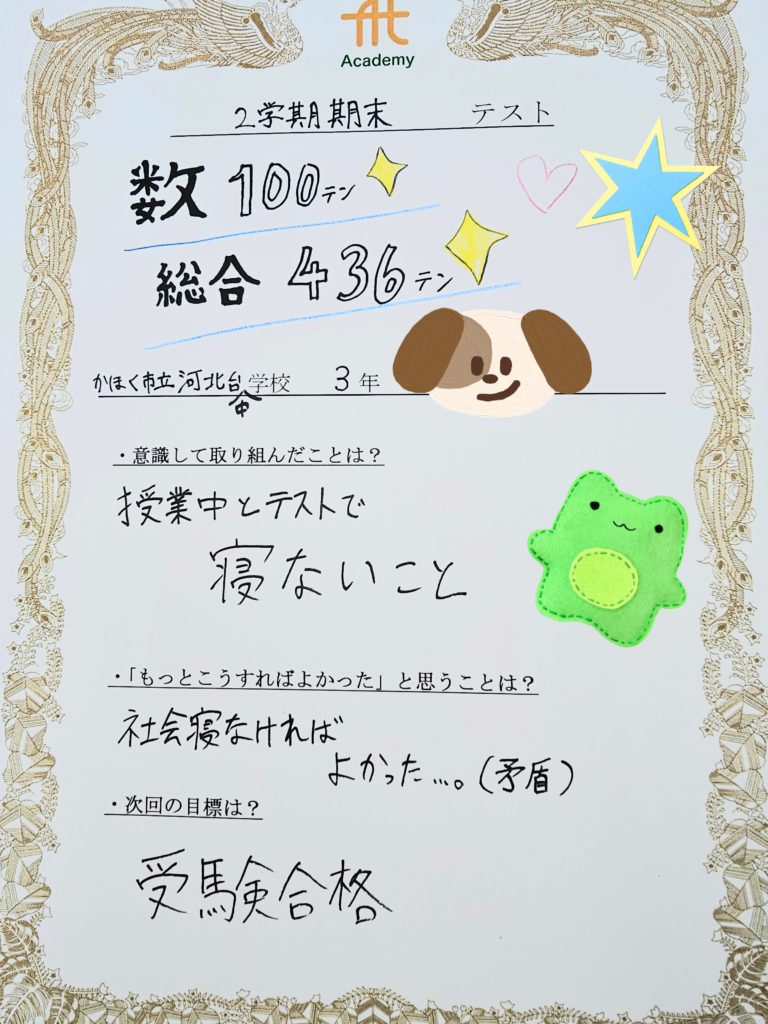 Academy
2学期期末 テスト
数 100テン
総合 436テン
かほく市立河北台中学校 3年
・意識して取り組んだことは？
授業中とテストで
寝ないこと
・「もっとこうすればよかった」と思うことは？
社会寝なければ
よかった…。(矛盾)
・次回の目標は？
受験合格